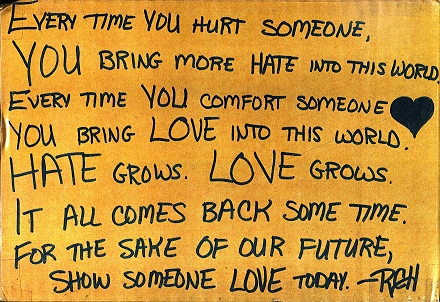 EVERY TIME YOU HURT SOMEONE,
YOU BRING MORE HATE INTO THIS WORLD.
EVERY TIME YOU COMFORT SOMEONE
YOU BRING LOVE INTO THIS WORLD.
HATE GROWS. LOVE GROWS.
IT ALL COMES BACK SOME TIME.
FOR THE SAKE OF OUR FUTURE,
SHOW SOMEONE LOVE TODAY. —RGH